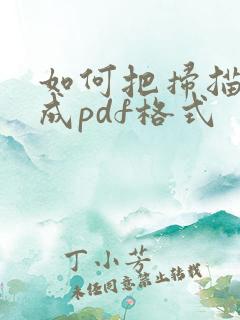 如何把扫描
成pdf格式
丁小芳
未经同意禁止转载